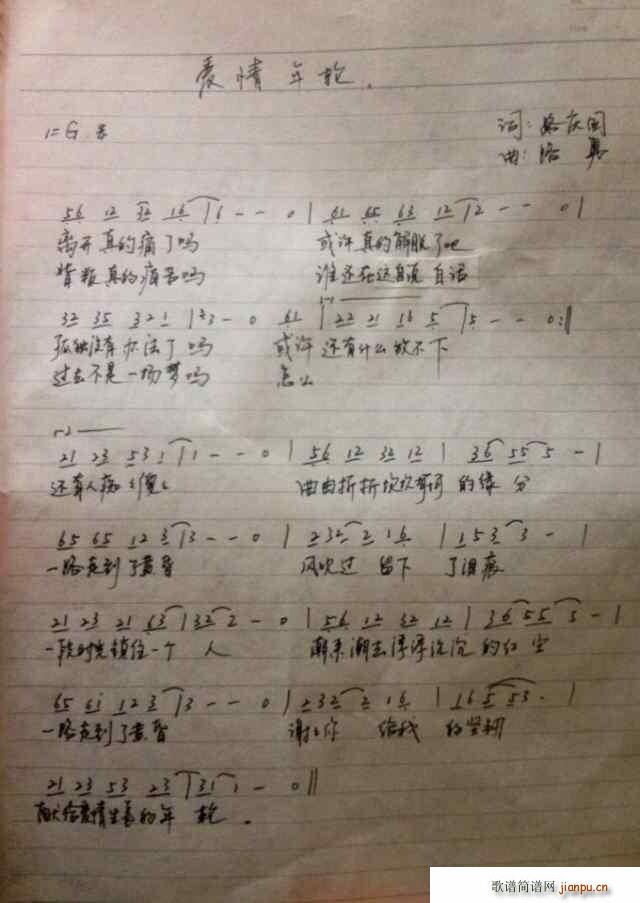 爱情年轮.
1=G
词:
曲:洛
56 12 32 16 | 6 - - 0 | 61 65 63 12 | 2 - - 0 |
离开真的痛了吗 或许真的解脱了吧
背叛真的痛苦吗 谁还在这自说自话
32 35 321 | 23 - 0 61 | 22 21 16 5 | 5 - - 0 :|
孤独没有办法了吗 或许还有什么放不下
过去不是一场梦吗 怎么
21 23 531 | 1 - - 0 | 56 12 32 12 | 36 55 5 - |
还有人 曲曲折折坎坎坷坷的缘分
65 65 12 3 | 3 - - 0 | 232 2 16 | 153 3 - |
一路走到了黄昏 风吹过 留下 了泪痕
21 23 21 63 | 32 2 - 0 | 56 12 32 12 | 36 55 5 - |
一段时光锁住一个 人 潮来潮去浮浮沉沉的红尘
65 61 12 3 | 3 - - 0 | 232 2 16 | 16 553 - |
一路走到了黄昏 谢谢你 给我 的坚韧
21 23 53 23 | 31 1 - 0 ||
献给爱情生长的年 轮.
歌谱简谱网
jianpu.cn